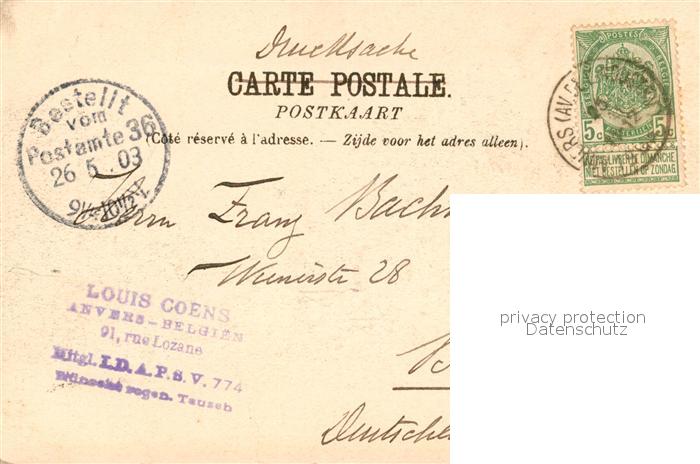 Drucksache
CARTE POSTALE.
POSTKAART
(Côté réservé à l'adresse. — Zijde voor het adres alleen).
Bestellt
vom
Postamte 36
26 5 03
POSTES
5c 5c
NE PAS LIVRER LE DIMANCHE
NIET BESTELLEN OP ZONDAG
Herrn Franz Bach
Wienerstr 28
LOUIS COENS
ANVERS-BELGIËN
91, rue Lozane
Mitgl. I.D.A.P.S.V. 774
Wünscht regen Tausch
Deutschl
privacy protection
Datenschutz